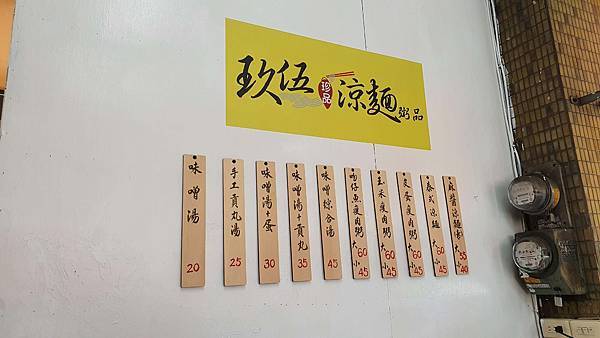 玖伍珍品涼麵粥品
味噌湯 20
手工貢丸湯 25
味噌湯+蛋 30
味噌湯+貢丸 35
味噌綜合湯 45
吻仔魚瘦肉粥 大60 小45
玉米瘦肉粥 大60 小45
皮蛋瘦肉粥 大60 小45
泰式涼麵 大60 小45
麻醬涼麵 大55 小40